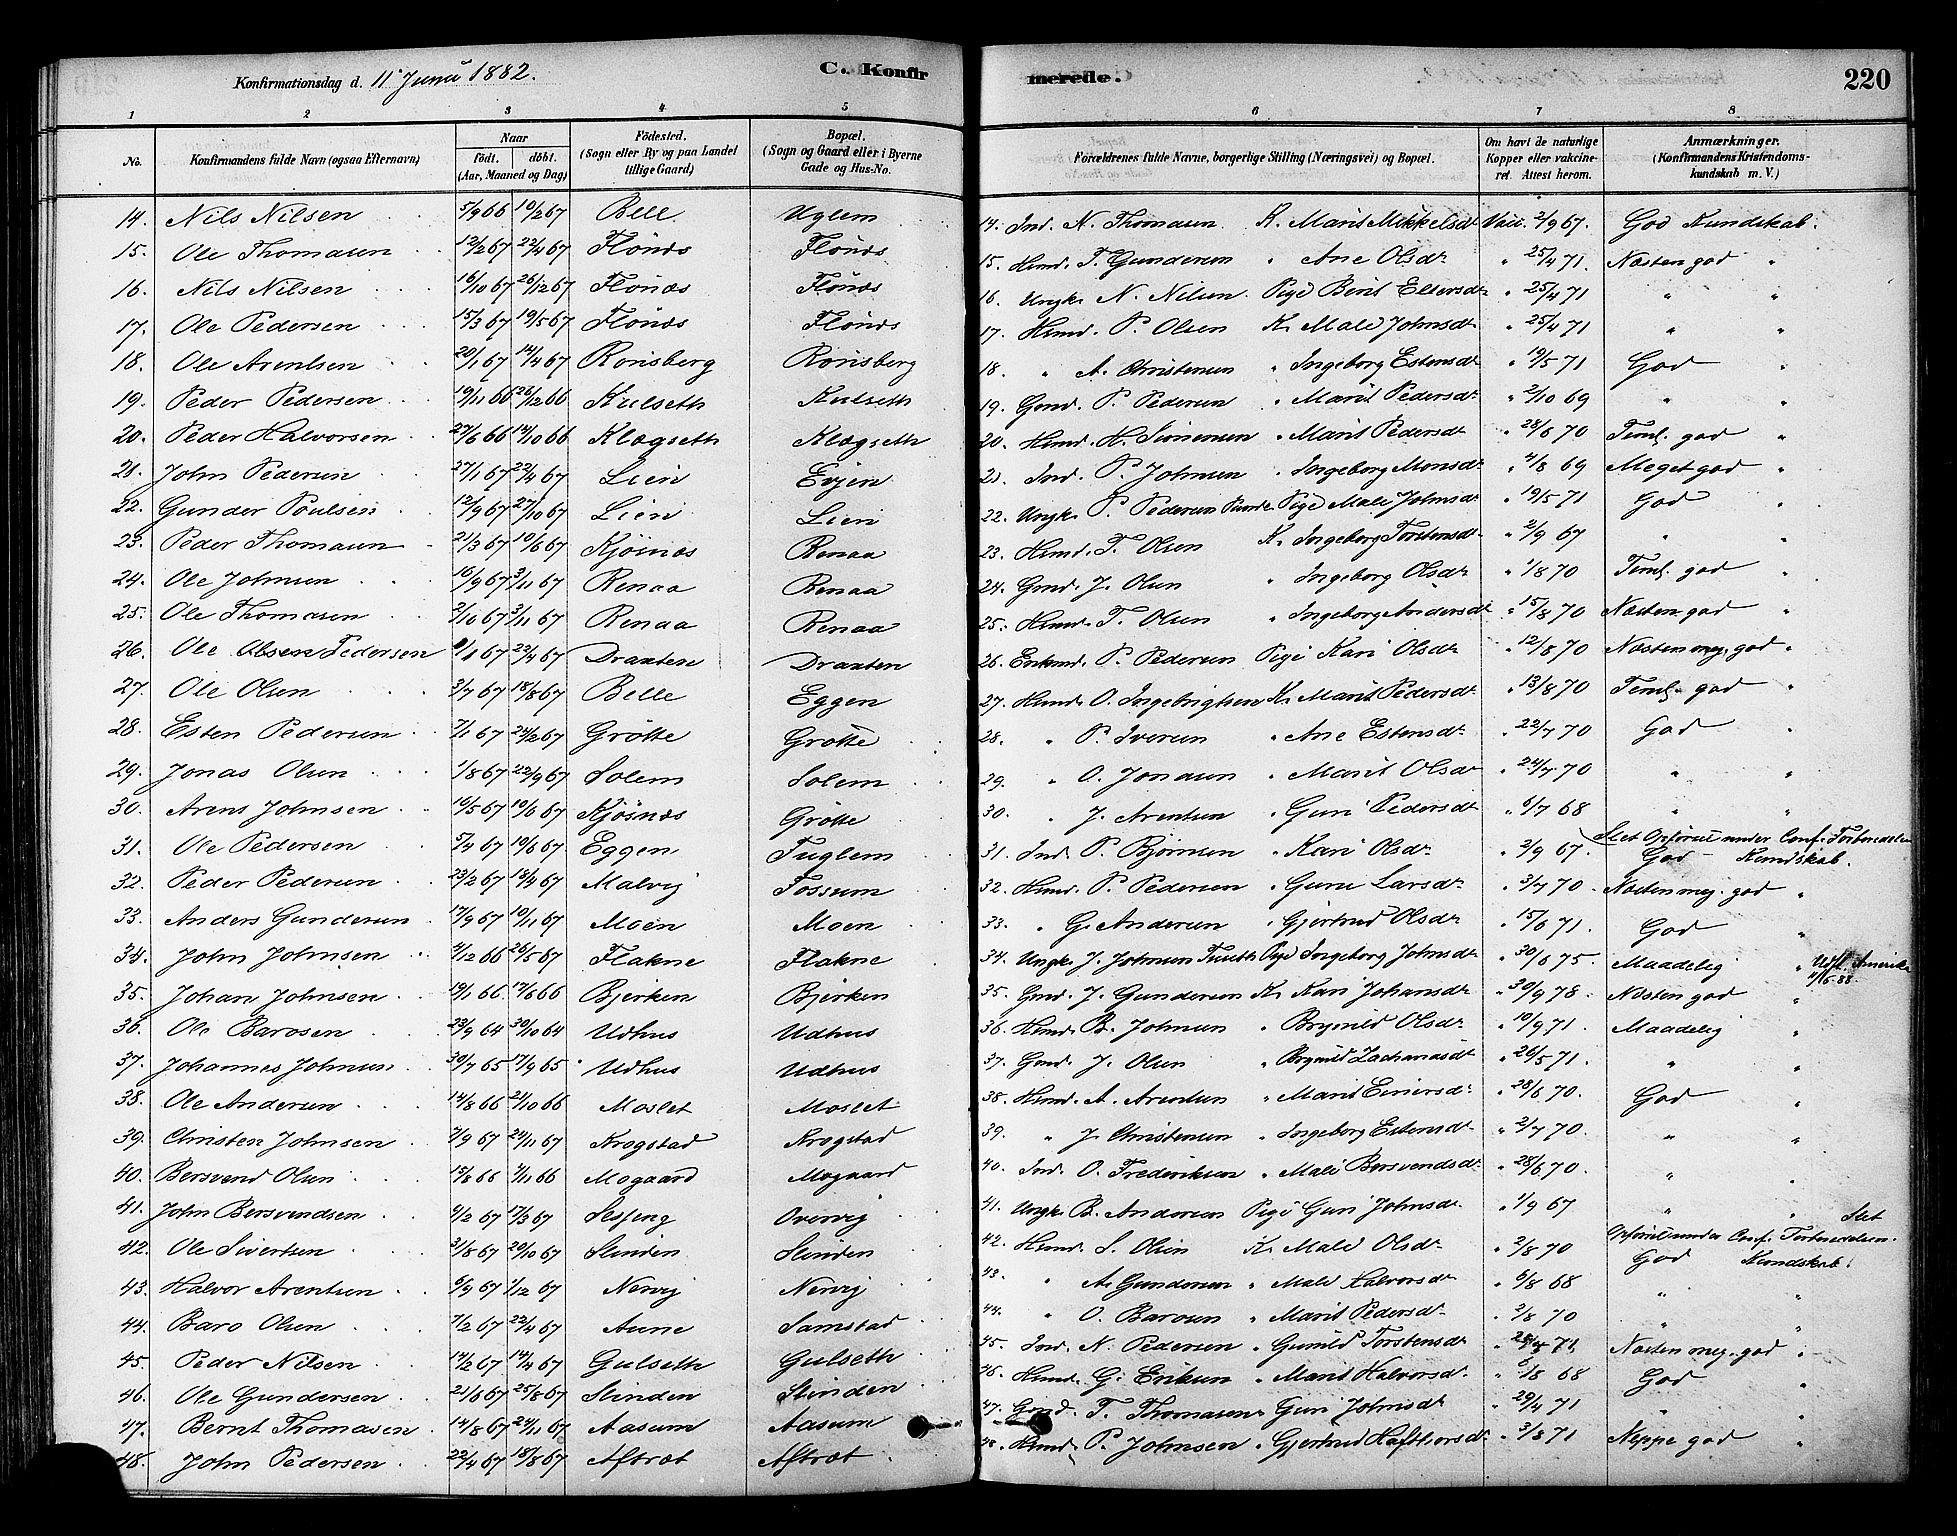 Konfirmationsdag d. 11' Juni 1882. C. Konfirmerede. 220
1 2 3 4 5 6 7 8
No. Konfirmandens fulde Navn (ogsaa Efternavn) Naar födt. döbt. (Aar, Maaned og Dag) Födested. (Sogn eller By og paa Landet tillige Gaard) Bopæl. (Sogn og Gaard eller i Byerne Gade og Hus-No. Forældrenes fulde Navne, borgerlige Stilling (Næringsvei) og Bopæl. Om havt de naturlige Kopper eller vakcineret. Attest herom. Anmærkninger. (Konfirmandens Kristendomskundskab m. V.)
14. Nils Nilsen 5/9 66 10/2 67 Bell Uglem 14. Ind. N. Thomasen K. Marit Mikkelsdr Vacc. 2/9 67. God Kundskab.
15. Ole Thomasen 12/2 67 22/4 67 Flönæs Flönæs 15. Husmd. T. Gundersen " Ane Olsdr " 25/4 71. Næsten god "
16. Nils Nilsen 16/10 67 26/12 67 Flönæs Flönæs 16. Ungk. N. Nilsen Pige Berit Ellersdr " 25/4 71 " "
17. Ole Pedersen 15/3 67 19/5 67 Flönæs Flönæs 17. Husmd. P. Olsen K. Mali Johnsdr " 25/4 71 " "
18. Ole Arentsen 20/1 67 14/4 67 Rönsberg Rönsberg 18. " A. Christensen " Ingeborg Estensdr " 19/5 71 God "
19. Peder Pedersen 19/11 66 26/12 66 Kulseth Kulseth 19. Gmd. P. Pedersen " Marit Pedersdr " 2/10 69 " "
20. Peder Halvorsen 27/6 66 14/10 66 Klægseth Klægseth 20. Husmd. H. Simensen " Marit Pedersdr " 28/6 70 Teml. god "
21. John Pedersen 27/1 67 22/4 67 Lien Evjen 21. Ind. P. Johnsen " Ingeborg Monsdr " 4/8 69 Meget god "
22. Gunder Poulsen 12/9 67 27/10 67 Lien Lien 22. Ungk. P. Pedersen Pige Mali Johnsdr " 19/5 71 God "
23. Peder Thomasen 21/3 67 10/6 67 Kjösnæs Renaa 23. Husmd. T. Olsen K. Ingeborg Torstensdr " 2/9 67 " "
24. Ole Johnsen 16/9 67 3/11 67 Renaa Renaa 24. Gmd. J. Olsen " Ingeborg Olsdr " 1/8 70 Teml. god "
25. Ole Thomasen 2/10 67 3/11 67 Renaa Renaa 25. Husmd. T. Olsen " Ingeborg Andersdr " 15/8 70 Næsten god "
26. Ole Olsen Pedersen 8/1 67 22/4 67 Draxten Draxten 26. Enkmd. P. Pedersen Pige Kari Olsdr " 12/8 70 Næsten meg. god "
27. Ole Olsen 3/7 67 18/8 67 Belle Eggen 27. Husmd. O. Ingebrigtsen K. Marit Pedersdr " 13/8 70 Teml. god "
28. Esten Pedersen 7/1 67 24/2 67 Grötte Grötte 28. " P. Iversen " Ane Estensdr " 22/7 70 God "
29. Jonas Olsen 1/8 67 22/9 67 Solem Solem 29. " O. Jonasen " Marit Olsdr " 24/7 70 " "
30. Arent Johnsen 10/5 67 10/6 67 Kjösnæs Grötte 30. " J. Arentsen " Guri Pedersdr " 6/7 68 " "
31. Ole Pedersen 5/4 67 10/6 67 Eggen Fuglem 31. Ind. P. Björnsen " Kari Olsdr " 2/9 67. Slet Opförsel under Conf. Forberedelsen God Kundskab.
32. Peder Pedersen 23/2 67 18/4 67 Malvig Fossum 32. Husmd. P. Pedersen " Guru Larsdr " 3/7 70. Næsten meg. god "
33. Anders Gundersen 17/9 67 10/11 67 Moen Moen 33. " G. Andersen " Gjertrud Olsdr " 15/6 71. God "
34. John Johnsen 4/12 66 26/5 67 Flakne Flakne 34. Ungk. J. Johnsen Pige Ingeborg Johnsdr " 30/6 75 Maadelig " Udfl. Amerika 4/5-88.
35. Johan Johnsen 19/1 66. 17/6 66 Bjerken Bjerken 35. Gmd. J. Gundersen K. Kari Johansdr " 30/9 78. Næsten god "
36. Ole Barosen 23/9 64 30/10 64 Udhus Udhus 36. Husmd. B. Johnsen " Brynild Olsdr " 10/9 71. Maadelig "
37. Johannes Johnsen 30/7 65 17/9 65 Udhus Udhus 37. Gmd. J. Olsen " Brynild Zachariasdr " 26/5 71. " "
38. Ole Andersen 14/8 66 21/10 66 Moslet Moslet 38. Husmd. A. Arentsen " Marit Einersdr " 28/6 70. God "
39. Christen Johnsen 7/9 67 24/11 67 Krogstad Krogstad 39. " J. Christensen " Ingeborg Estensdr " 2/7 70. " "
40. Bersvend Olsen 15/8 66 7/11 66 Mogaard Mogaard 40. Ind. O. Frederiksen " Mali Bersvendsdr " 28/6 70. " "
41. John Bersvendsen 4/2 67 17/3 67 Sesseng Overvig 41. Ungk. B. Andersen Pige Guri Johnsdr " 1/9 67 " "
42. Ole Sivertsen 31/8 67 20/10 67 Slinden Slinden 42. Husmd. S. Olsen K. Mali Olsdr " 2/8 70 Slet Opförsel under Conf. Forberedelsen. God Kundskab.
43. Halvor Arentsen 6/9 67 1/12 67 Nervig Nervig 43. " A. Gundersen " Mali Halvorsdr " 6/8 68 " "
44. Baro Olsen 7/2 67 22/4 67 Aune Samstad 44. " O. Barosen " Marit Pedersdr " 2/8 70 " "
45. Peder Nilsen 14/2 67 14/4 67 Gulseth Gulseth 45. Ind. N. Pedersen " Gunild Torstensdr " 71 Næsten meg. god "
46. Ole Gundersen 21/6 67 25/8 67 Slinden Slinden 46. Husmd. G. Eriksen " Marit Halvorsdr " 6/8 68 God "
47. Bernt Thomasen 14/8 67 24/11 67 Aasum Aasum 47. Gmd. T. Thomasen " Guri Johnsdr " 29/4 71 " "
48. John Pedersen 22/4 67 18/8 67 Aftret Aftret 48. Husmd. P. Johnsen " Gjertrud Hafthorsdr " 3/8 71 Neppe god "